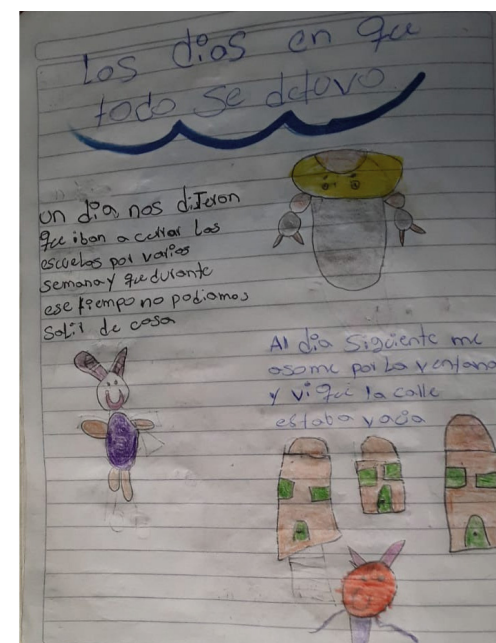 Los dias en que
todo se detuvo
un dia nos dijeron
que iban a cerrar las
escuelas por varios
semana y que durante
ese tiempo no podiamos
Salir de casa
Al dia Siguiente me
asome por la ventana
y vi que la calle
estaba vacia